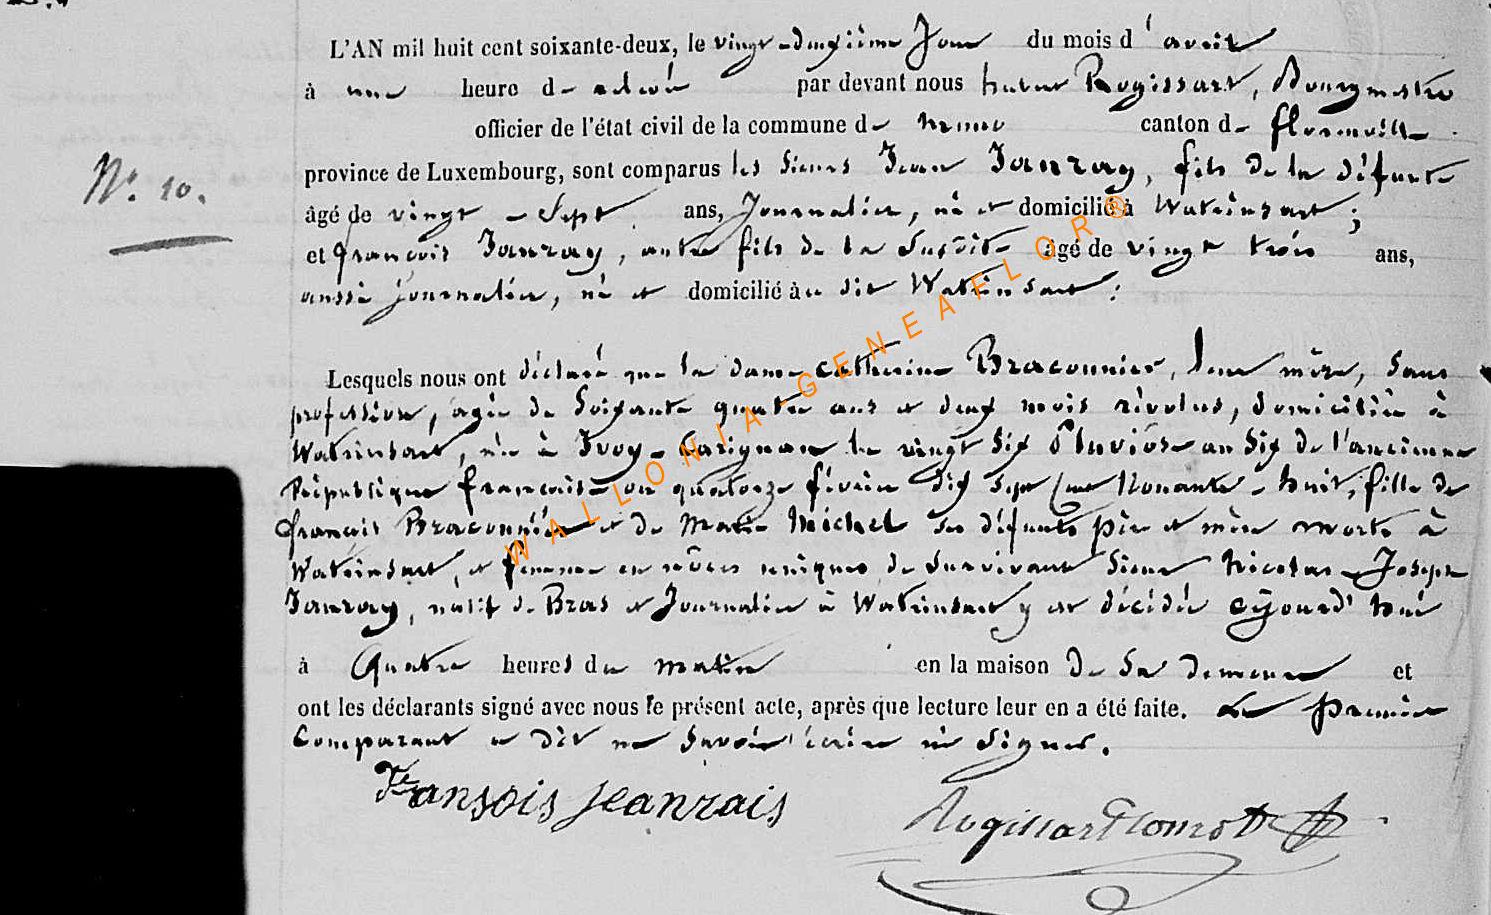 L'AN mil huit cent soixante-deux, le vingt-deuxième Jour du mois d'avril
à une heure de relevée par devant nous hubert Rogissart, Bourgmestre
officier de l'état civil de la commune de canton de florenville
N.° 10.
province de Luxembourg, sont comparus les Sieurs Jean Janray, fils de la défunte
âgé de vingt-Sept ans, Journalier, né et domicilié à Watrinsart;
et françois Janray, autre fils de la Susdite âgé de vingt trois ans,
aussi journalier, né et domicilié au dit Watrinsart:
Lesquels nous ont déclaré que la dame catherine Braconnier, leur mère, Sans
profession, âgée de Soixante quatre ans et deux mois révolus, domiciliée à
Watrinsart, née à Ivoy-Carignan le vingt Six Pluviôse an Six de l'ancienne
République française ou quatorze février dix Sept Cent Nonante-huit, fille de
françois Braconnier et de Marie Michel Ses défunts père et mère morts à
Watrinsart, et femme en nôces uniques de Survivant Sieur Nicolas-Joseph
Janray, natif de Bras et Journalier à Watrinsart y est décédée cejourd'hui
à Quatre heures du matin en la maison de Sa demeure et
ont les déclarants signé avec nous le présent acte, après que lecture leur en a été faite. Le Premier
Comparant a dit ne Savoir écrire ni Signer.
fransois jeanrais
Rogissart
WALLONIA-GENEAFLOR®